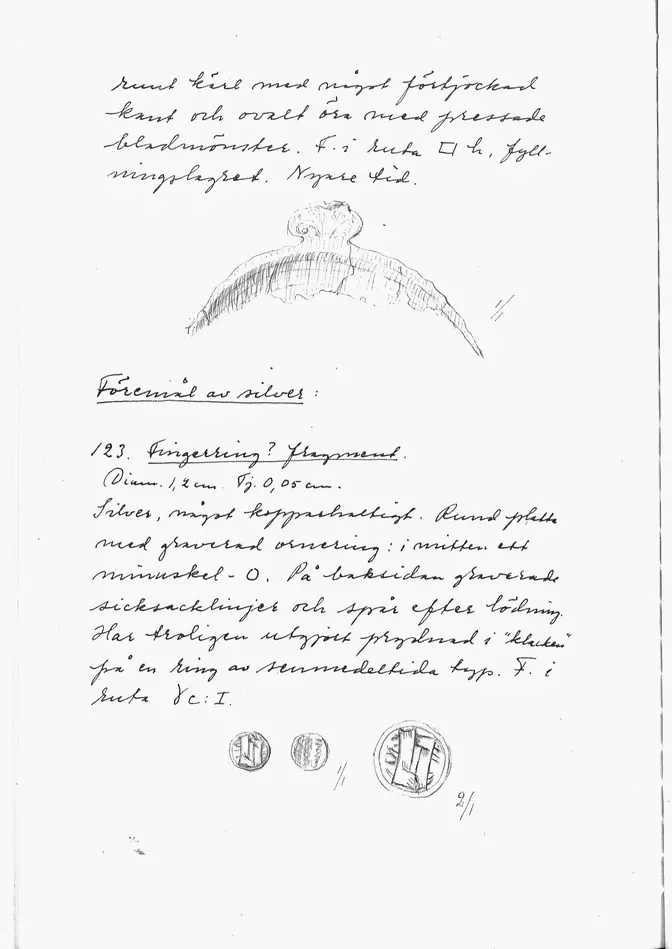 runt kärl med något förtjockad
kant och ovalt öra med pressade
bladmönster. F. i ruta □ h, fyll-
ningslagret. Nyare tid.
1/1
Föremål av silver:
123. Fingerring? fragment.
Diam. 1,2 cm. Tj. 0,05 cm.
Silver, något kopparhaltigt. Rund platta
med graverad ornering: i mitten ett
minuskel - O. På baksidan graverade
sicksacklinjer och spår efter lödning.
Har troligen utgjort prydnad i "klacken"
på en ring av senmedeltida typ. F. i
ruta c: I.
1/1
2/1